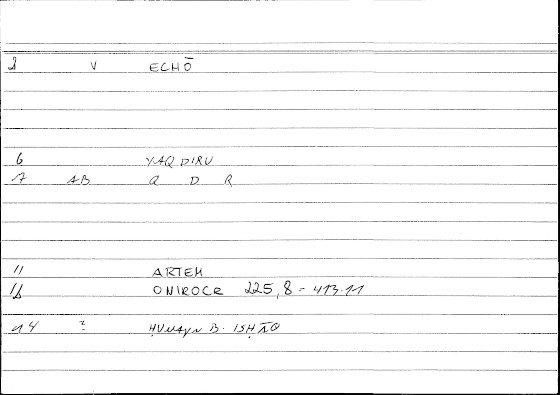 2 V ECHŌ
6 YAQDIRU
7 AB Q D R
11 ARTEM
12 ONIROCR 225,8 = 413.11
14 ? ḤUNAYN B. ISḤĀQ